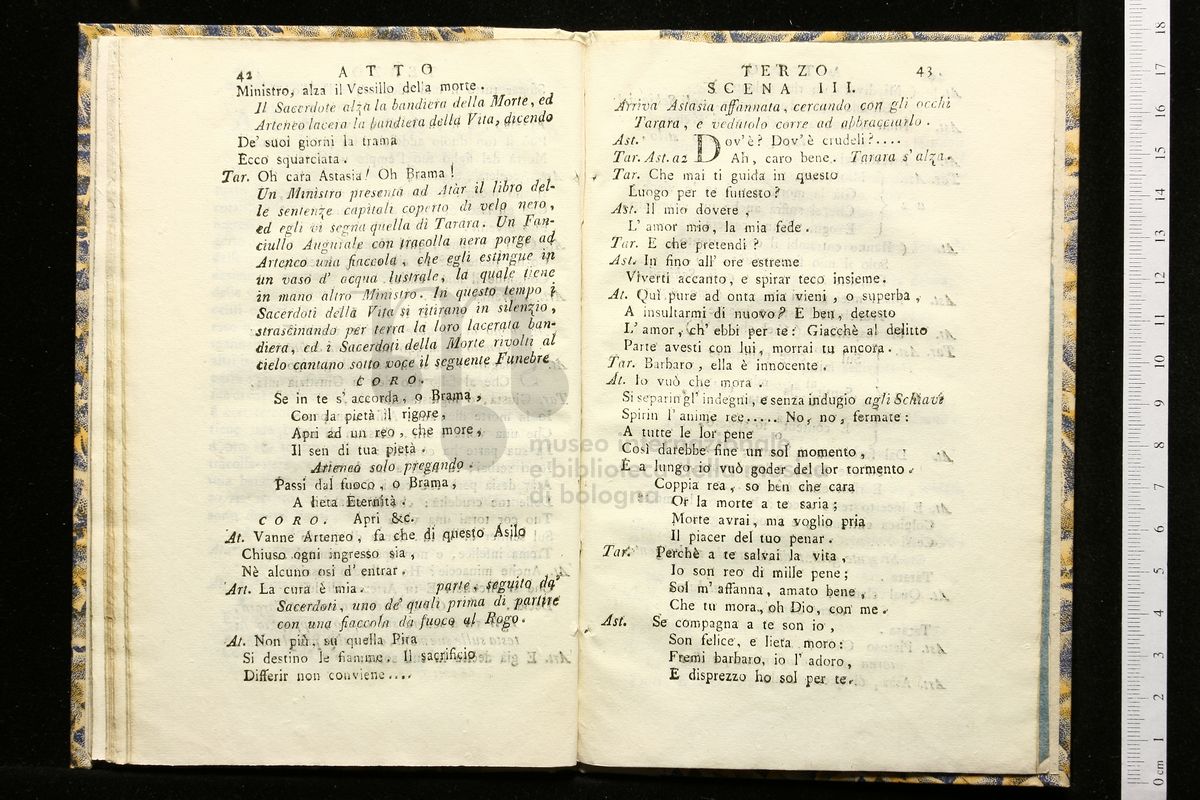 42 ATTO
Ministro, alza il Vessillo della morte.
Il Sacerdote alza la bandiera della Morte, ed
Arteneo lacera la bandiera della Vita, dicendo
De' suoi giorni la trama
Ecco squarciata.
Tar. Oh cara Astasia! Oh Brama!
Un Ministro presenta ad Atàr il libro del-
le sentenze capitali coperto di velo nero,
ed egli vi segna quella di Tarara. Un Fan-
ciullo Auguiale con tracolla nera porge ad
Arteneo una fiaccola, che egli estingue in
un vaso d' acqua lustrale, la quale tiene
in mano altro Ministro. In questo tempo i
Sacerdoti della Vita si ritirano in silenzio,
strascinando per terra la loro lacerata ban-
diera, ed i Sacerdoti della Morte rivolti al
cielo cantano sotto voce il seguente Funebre
CORO.
Se in te s' accorda, o Brama,
Con la pietà il rigore,
Apri ad un reo, che more,
Il sen di tua pietà.
Arteneo solo pregando.
Passi dal fuoco, o Brama,
A lieta Eternità.
CORO. Apri &c.
At. Vanne Arteneo, fa che di questo Asilo
Chiuso ogni ingresso sia,
Nè alcuno osi d' entrar.
Art. La cura è mia. parte, seguito da'
Sacerdoti, uno de' quali prima di partire
con una fiaccola dà fuoco al Rogo.
At. Non più, su quella Pira
Si destino le fiamme. Il sacrificio
Differir non conviene....
TERZO 43
SCENA III.
Arriva Astasia affannata, cercando con gli occhi
Tarara, e vedutolo corre ad abbracciarlo.
Ast. Dov'è? Dov'è crudeli?....
Tar. Ast. a 2 Ah, caro bene. Tarara s' alza.
Tar. Che mai ti guida in questo
Luogo per te funesto?
Ast. Il mio dovere,
L' amor mio, la mia fede.
Tar. E che pretendi?
Ast. In fino all' ore estreme
Viverti accanto, e spirar teco insieme.
At. Quì pure ad onta mia vieni, o superba,
A insultarmi di nuovo? E ben, detesto
L' amor, ch' ebbi per te: Giacchè al delitto
Parte avesti con lui, morrai tu ancora.
Tar. Barbaro, ella è innocente.
At. Io vuò che mora.
Si separin gl' indegni, e senza indugio agli Schiavi
Spirin l' anime ree..... No, no, fermate:
A tutte le lor pene
Così darebbe fine un sol momento,
E a lungo io vuò goder del lor tormento.
Coppia rea, so ben che cara
Or la morte a te saria;
Morte avrai, ma voglio pria
Il piacer del tuo penar.
Tar. Perchè a te salvai la vita,
Io son reo di mille pene;
Sol m' affanna, amato bene,
Che tu mora, oh Dio, con me.
Ast. Se compagna a te son io,
Son felice, e lieta moro:
Fremi barbaro, io l' adoro,
E disprezzo ho sol per te.
museo internazionale
e biblioteca della musica
di bologna
0 cm 1 2 3 4 5 6 7 8 9 10 11 12 13 14 15 16 17 18